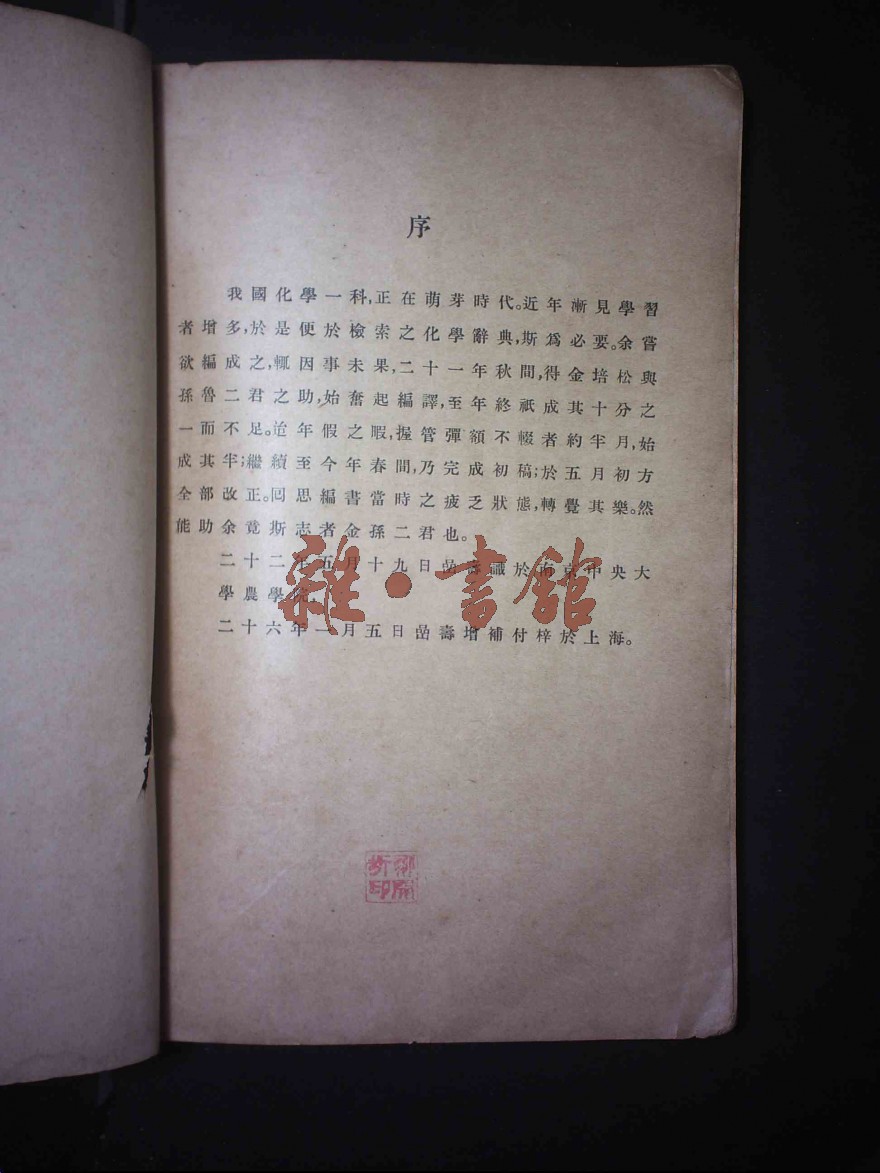 序
我國化學一科,正在萌芽時代。近年漸見學習
者增多,於是便於檢索之化學辭典,斯爲必要。余嘗
欲編成之,輒因事未果,二十一年秋間,得金培松與
孫魯二君之助,始奮起編譯,至年終祇成其十分之
一而不足。迨年假之暇,握管彈額不輟者約半月,始
成其半;繼續至今年春間,乃完成初稿;於五月初方
全部改正。囘思編書當時之疲乏狀態,轉覺其樂。然
能助余竟斯志者金孫二君也。
二十二年五月十九日嵒壽識於南京中央大
學農學院。
二十六年一月五日嵒壽增補付梓於上海。
雜·書館
印